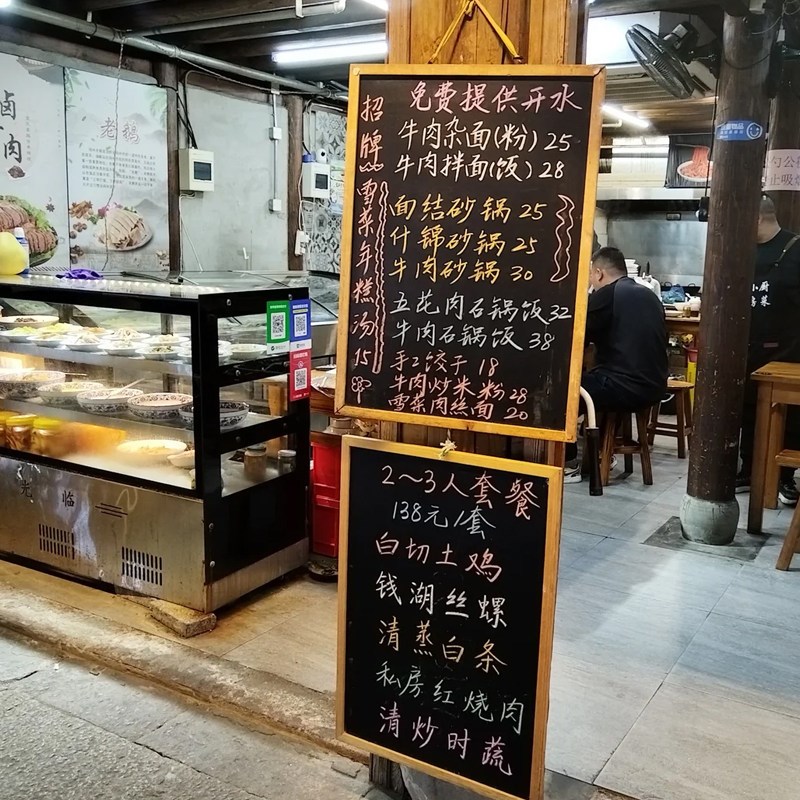 免费提供开水
招牌
雪菜年糕汤 15
牛肉杂面(粉) 25
牛肉拌面(饭) 28
面结砂锅 25
什锦砂锅 25
牛肉砂锅 30
五花肉石锅饭 32
牛肉石锅饭 38
手工饺子 18
牛肉炒米粉 28
雪菜肉丝面 20
2~3人套餐
138元/套
白切土鸡
钱湖丝螺
清蒸白条
私房红烧肉
清炒时蔬
卤肉
老鹅
光临
小厨